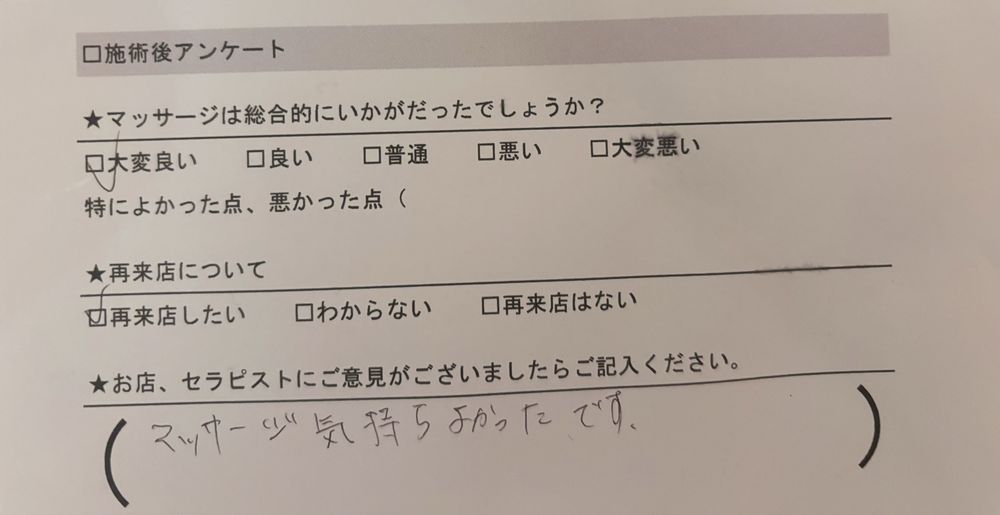 □施術後アンケート
★マッサージは総合的にいかがだったでしょうか？
☑大変良い □良い □普通 □悪い □大変悪い
特によかった点、悪かった点（
★再来店について
☑再来店したい □わからない □再来店はない
★お店、セラピストにご意見がございましたらご記入ください。
(マッサージ気持ちよかったです。)